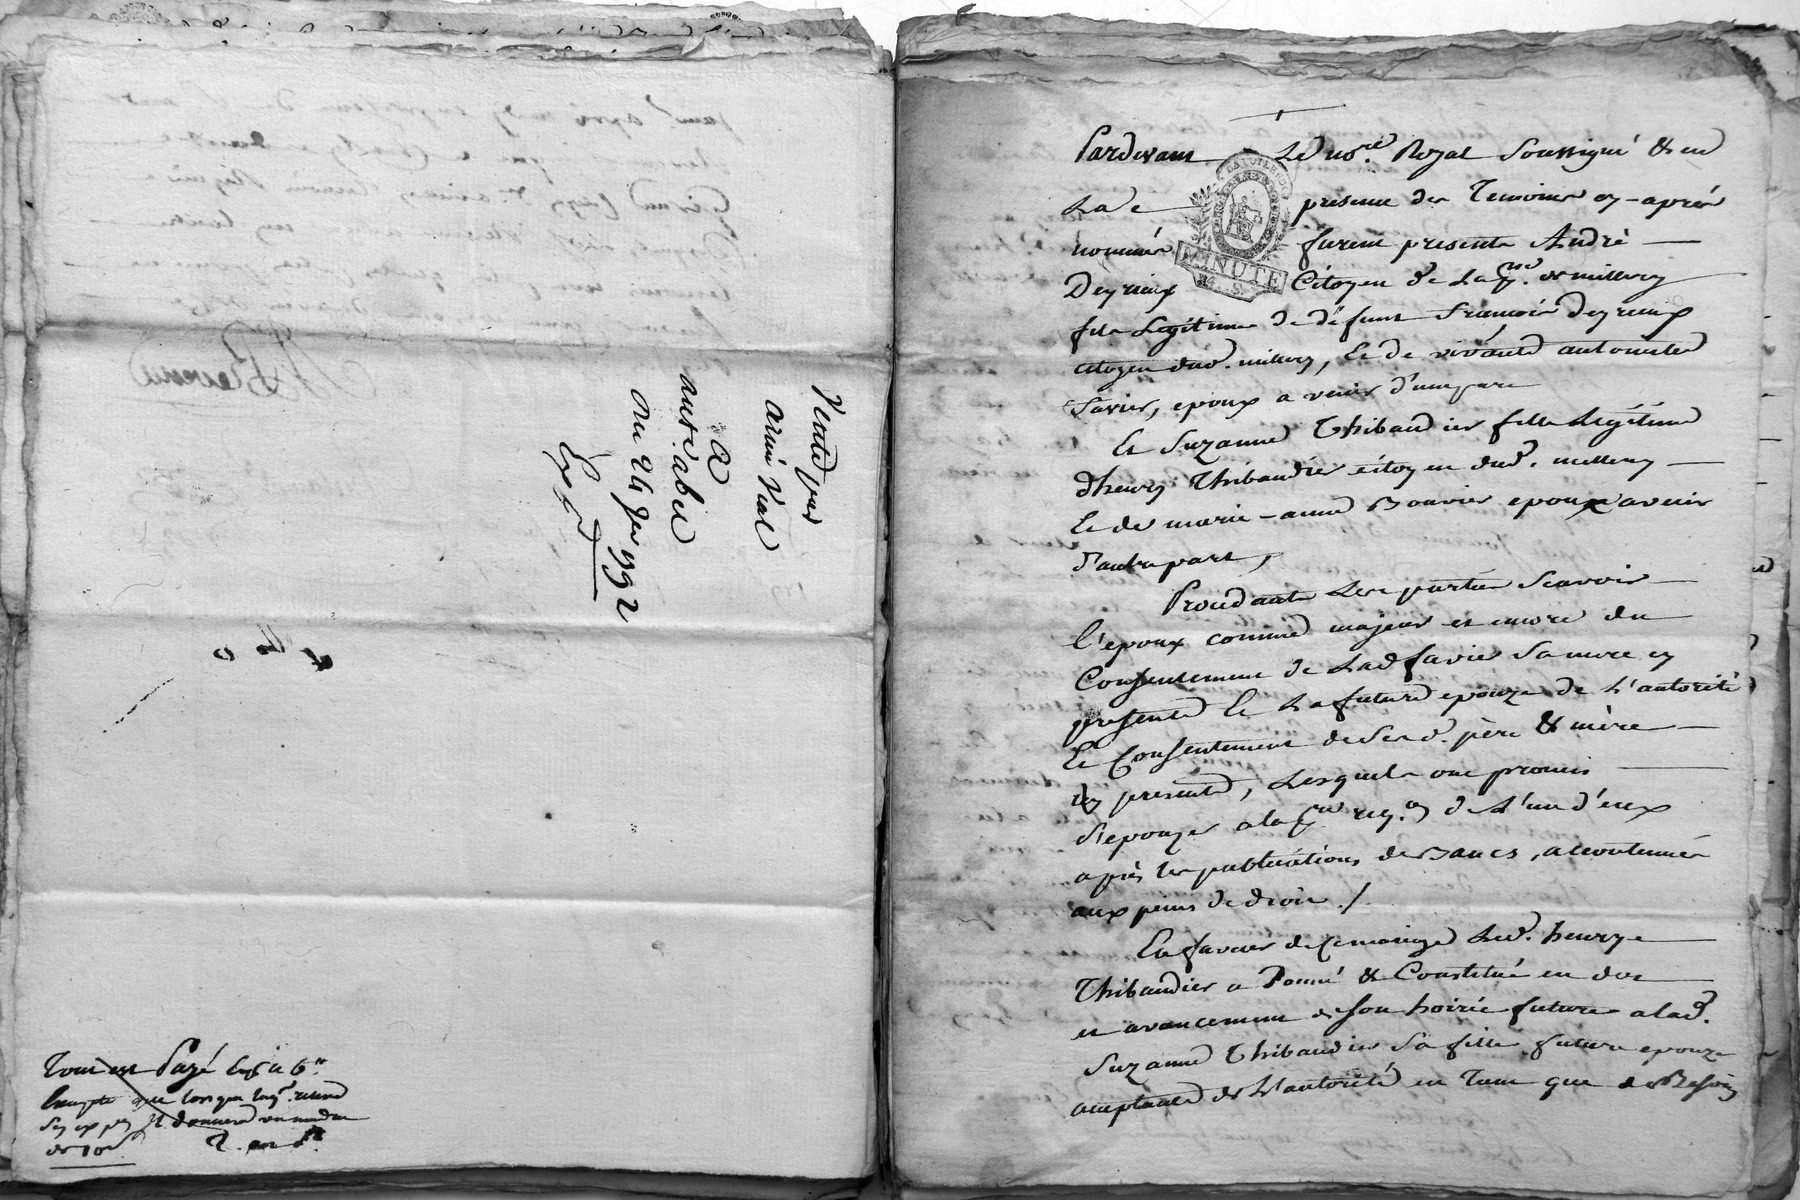 Vente par
aimé Vial
A
ant. abel
Du 24 Jer 1792
Exp.
Tout est Payé
Pardevant Le no.re Royal Soussigné & en
La presence des Temoins cy-après
nommés furent presents André
Deyrieux Citoyen de La p.sse de millery
fils Legitime de défunt francois Deyrieux
citoyen dud. millery, Et de vivante antoinette
favier, epoux a venir d'une part
Et Suzanne Thibaudier fille Legitime
d'henry Thibaudier citoyen dud. millery
Et de marie-anne Bouvier epouze avenir
d'autre part,
Procedants Les parties Scavoir
l'epoux comme majeur et encore du
Consentement de Lad favier Sa mere cy
presente Et La future epouze de L'autorité
Et Consentement de Ses d. père & mère
cy presents, Lesquels ont promis
S'epouzer a la p.re req.on de L'un d'eux
après les publications de Bancs, accoutumés
aux peines de droit ./.
En faveur de Ce mariage Led. henry
Thibaudier a Donné & Constitué en dot
et avancement de Son hoirie future a lad.
Suzanne Thibaudier Sa fille future epouze
acceptante de L'autorité en Tant que de Besoin
MINUTE
4. S.